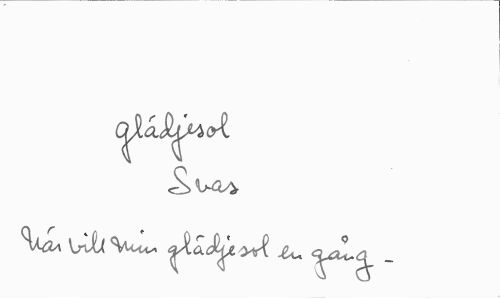 glädjesol
Svas
När vill min glädjesol en gång -